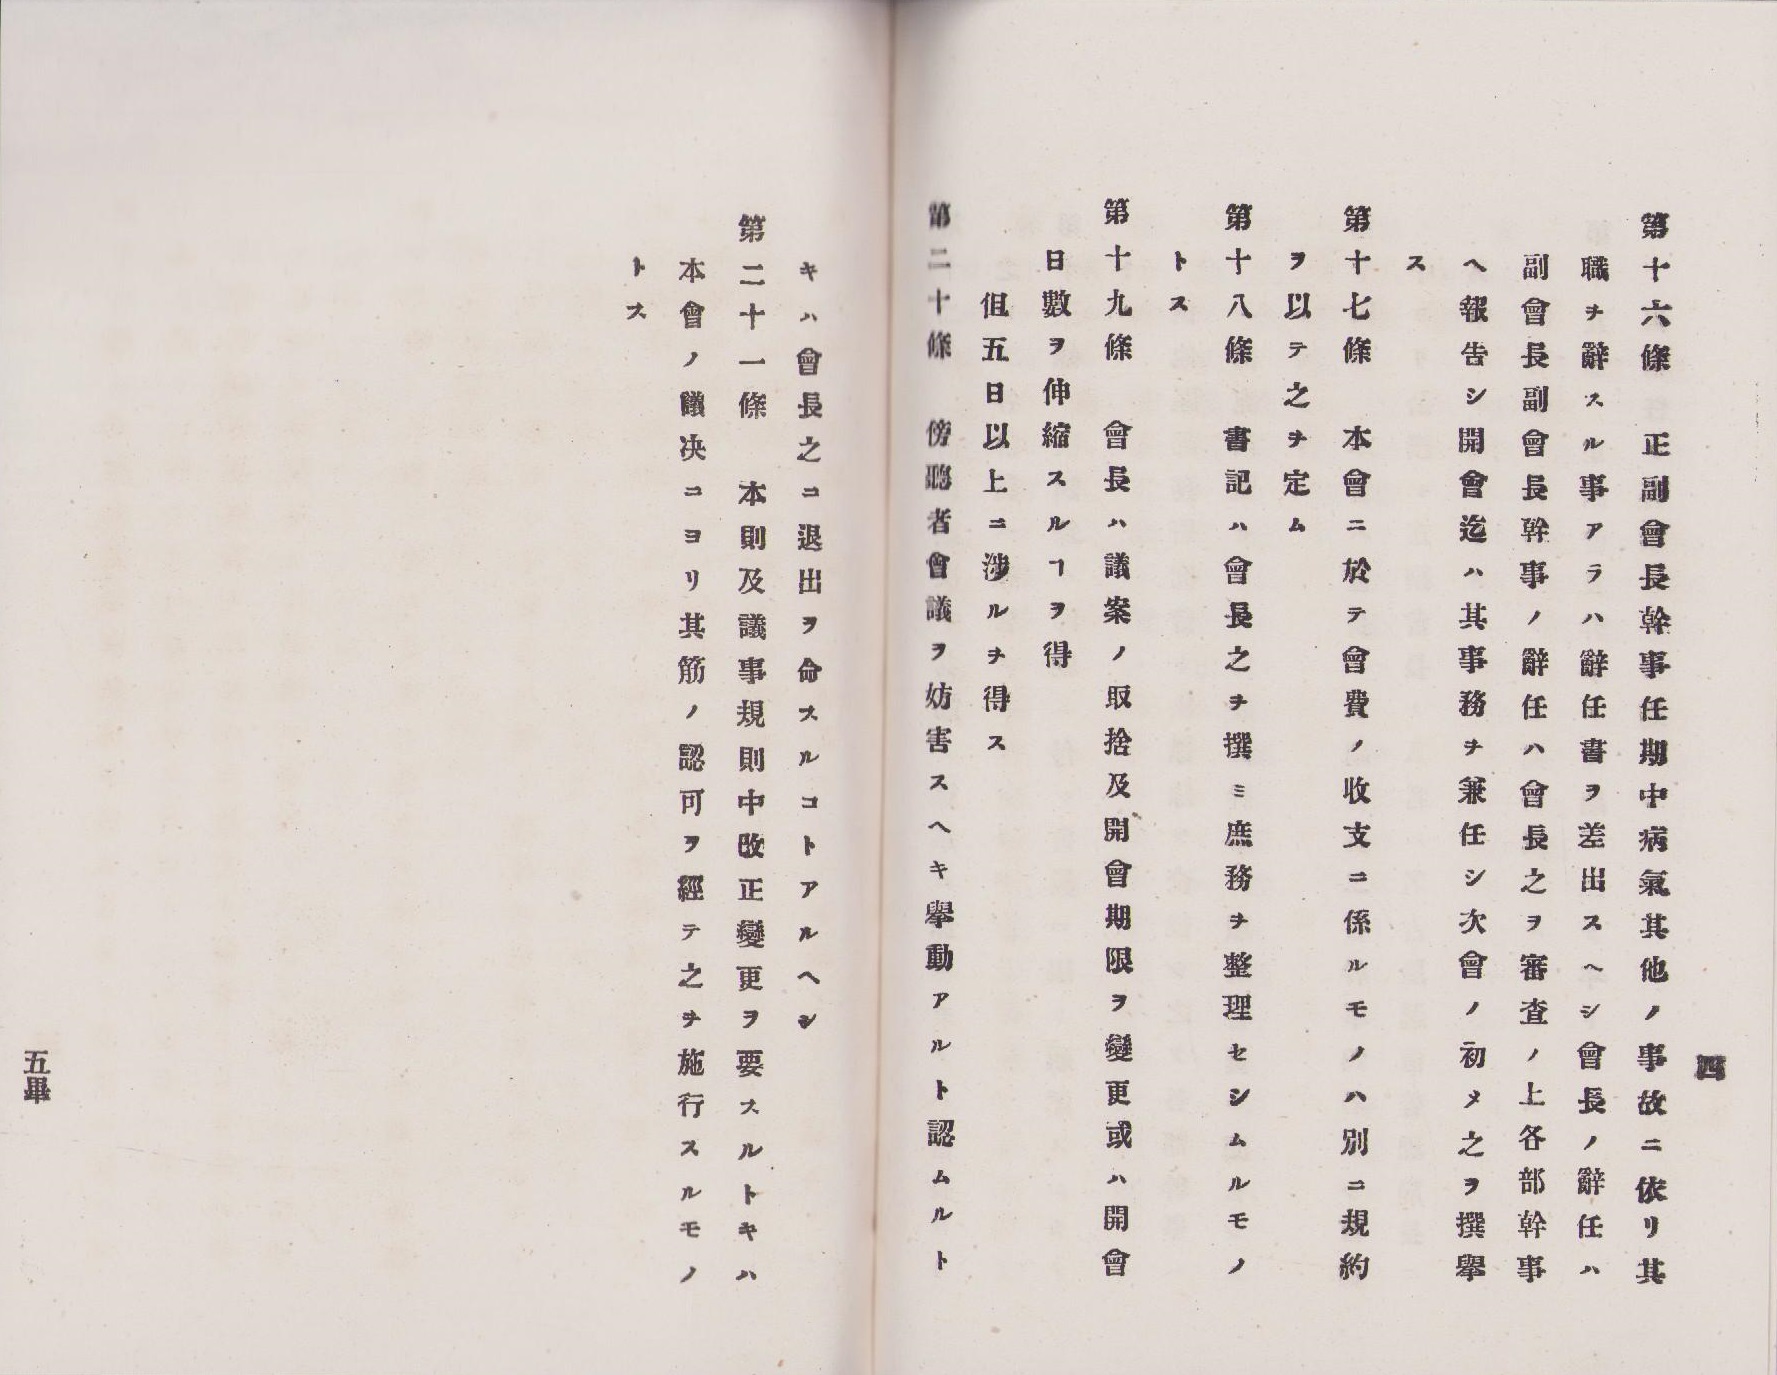 四
第十六條　正副會長幹事任期中病氣其他ノ事故ニ依リ其
職ヲ辭スル事アラハ辭任書ヲ差出スヘシ會長ノ辭任ハ
副會長副會長幹事ノ辭任ハ會長之ヲ審査ノ上各部幹事
ヘ報告シ開會迄ハ其事務ヲ兼任シ次會ノ初メ之ヲ撰擧
ス
第十七條　本會ニ於テ會費ノ收支ニ係ルモノハ別ニ規約
ヲ以テ之ヲ定ム
第十八條　書記ハ會長之ヲ撰ミ庶務ヲ整理セシムルモノ
トス
第十九條　會長ハ議案ノ取捨及開會期限ヲ變更或ハ開會
日數ヲ伸縮スルヿヲ得
但五日以上ニ涉ルヲ得ス
第二十條　傍聽者會議ヲ妨害スヘキ擧動アルト認ムルト
キハ會長之ニ退出ヲ命スルコトアルヘシ
第二十一條　本則及議事規則中改正變更ヲ要スルトキハ
本會ノ議决ニヨリ其筋ノ認可ヲ經テ之ヲ施行スルモノ
トス
五畢